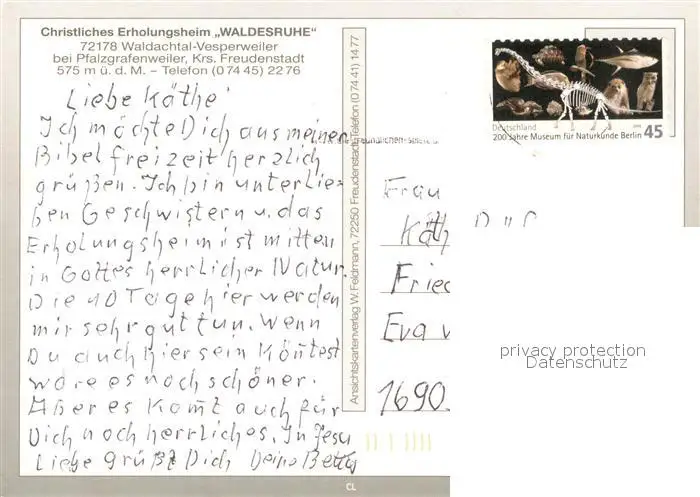 Christliches Erholungsheim „WALDESRUHE"
72178 Waldachtal-Vesperweiler
bei Pfalzgrafenweiler, Krs. Freudenstadt
575 m ü. d. M. – Telefon (0 74 45) 22 76
Liebe Käthe
Ich möchte Dich aus meiner
Bibelfreizeit herzlich
grüßen. Ich bin unter lie-
ben Geschwistern u. das
Erholungsheim ist mitten
in Gottes herrlicher Natur.
Die 10 Tage hier werden
mir sehr gut tun. Wenn
Du auch hier sein köntest
wäre es noch schöner.
Aber es komt auch für
Dich noch herrliches. In Jesu
Liebe grüßt Dich Deine Betty
Ansichtskartenverlag W. Feldmann, 72250 Freudenstadt, Telefon (0 74 41) 14 77
Deutschland
200 Jahre Museum für Naturkunde Berlin 45
Frau
Käth
Fried
Eva
1690
privacy protection
Datenschutz
CL